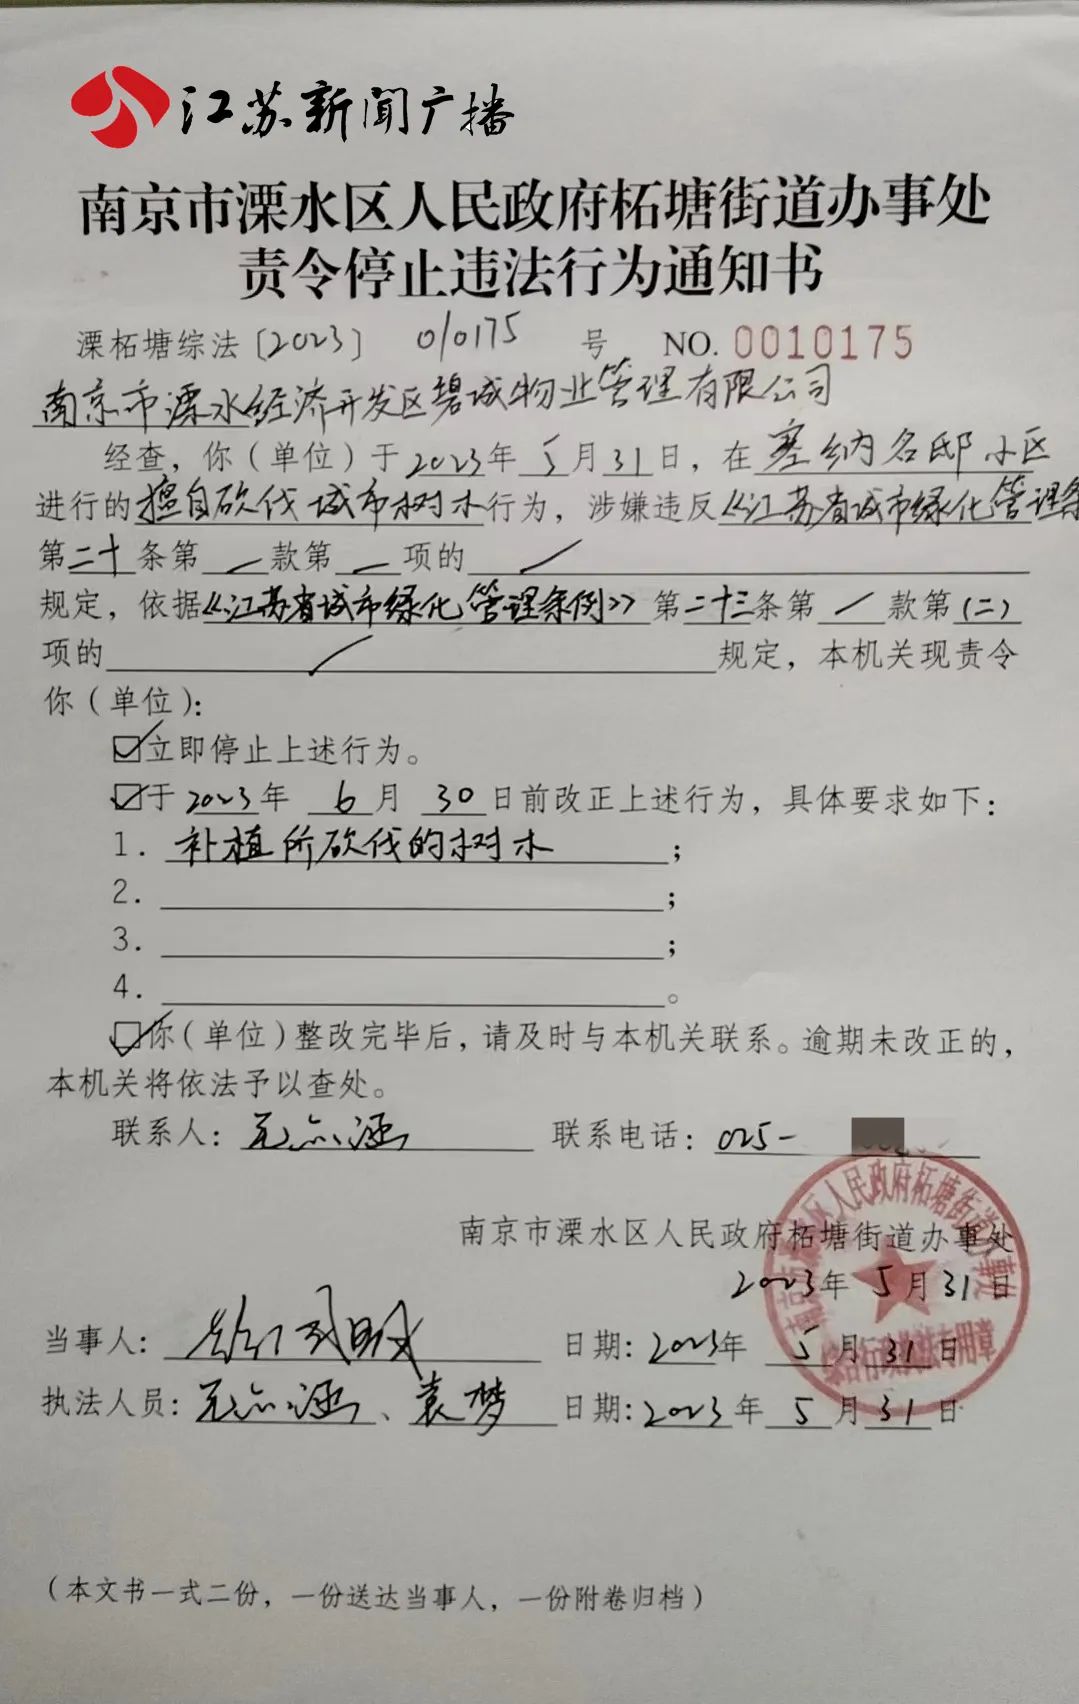 江苏新闻广播
南京市溧水区人民政府柘塘街道办事处
责令停止违法行为通知书
溧柘塘综法〔2023〕 010175 号 NO. 0010175
南京市溧水经济开发区碧城物业管理有限公司
经查，你（单位）于2023年5月31日，在塞纳名邸小区
进行的擅自砍伐城市树木行为，涉嫌违反《江苏省城市绿化管理条
第二十条第 / 款第 / 项的 /
规定，依据《江苏省城市绿化管理条例》第二十三条第 / 款第(二)
项的 / 规定，本机关现责令
你（单位）：
☑立即停止上述行为。
☑于2023年 6月 30日前改正上述行为，具体要求如下：
1. 补植所砍伐的树木；
2. ；
3. ；
4. 。
☑你（单位）整改完毕后，请及时与本机关联系。逾期未改正的，
本机关将依法予以查处。
联系人： 联系电话：025-
南京市溧水区人民政府柘塘街道办事处
2023年 5月31日
当事人： 日期：2023年 5月31日
执法人员： 、袁梦 日期：2023年 5月31日
（本文书一式二份，一份送达当事人，一份附卷归档）